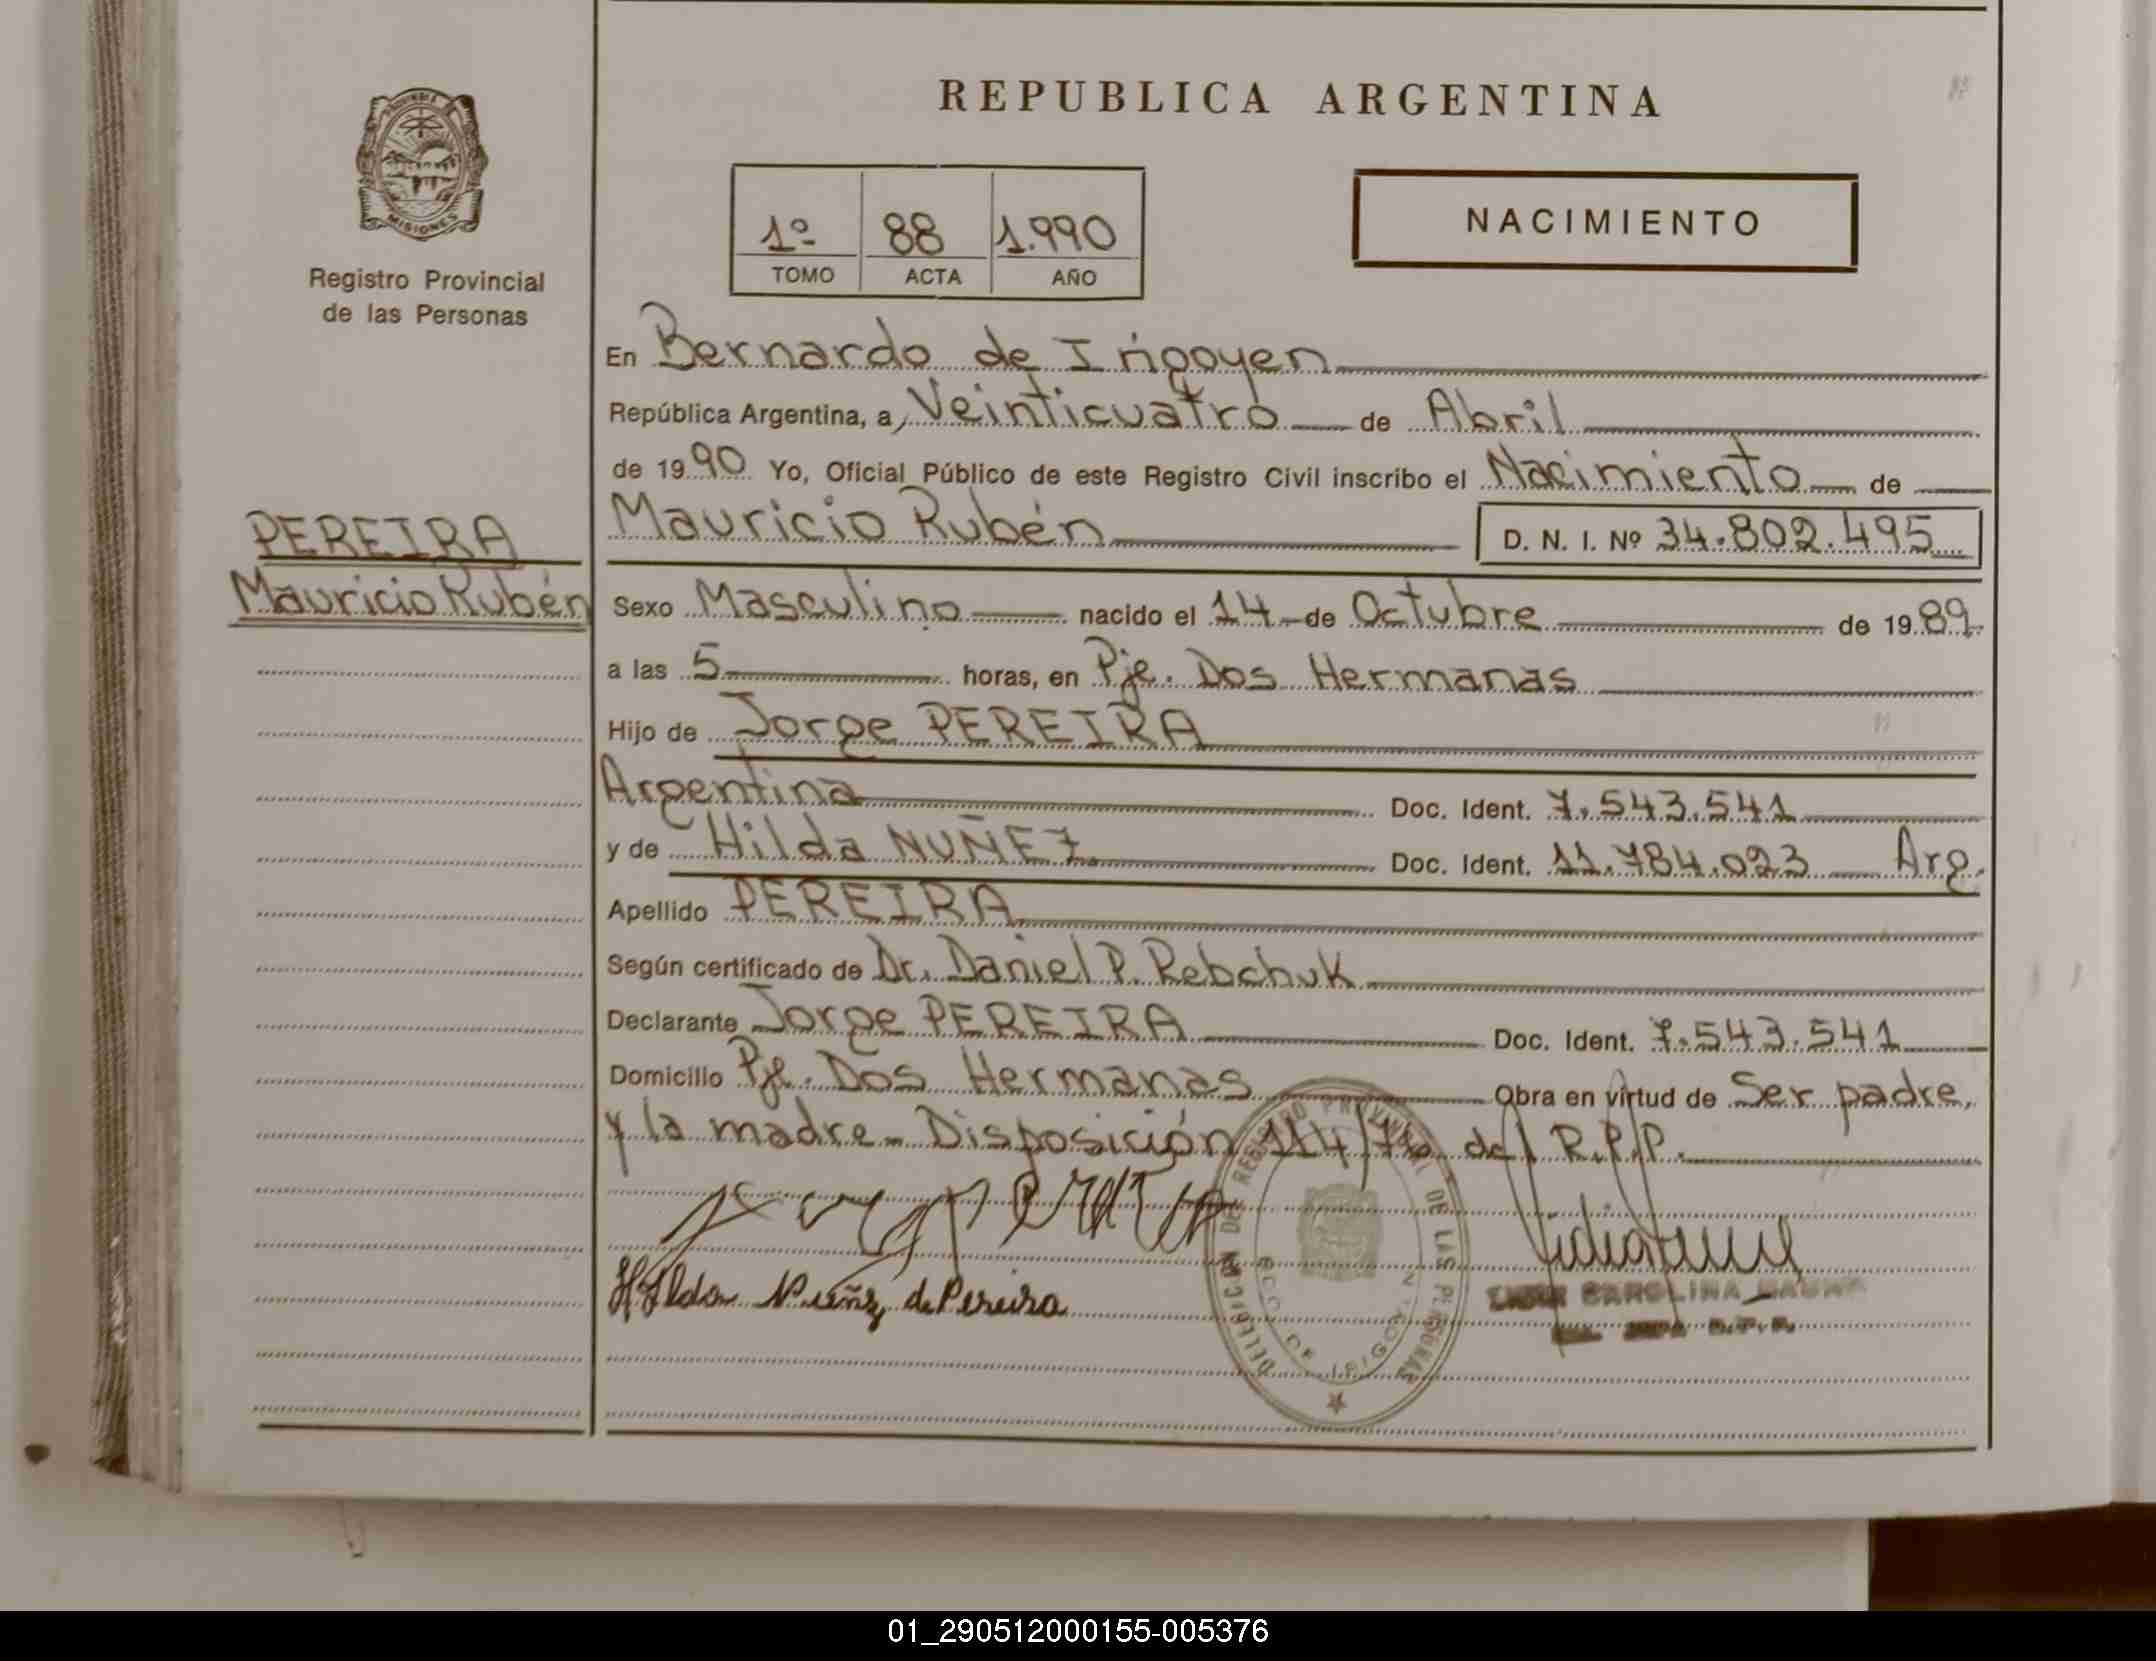 REPUBLICA ARGENTINA
PROVINCIA DE
MISIONES
Registro Provincial
de las Personas
1º 88 1.990
TOMO ACTA AÑO
NACIMIENTO
En Bernardo de Irigoyen
República Argentina, a, Veinticuatro de Abril
de 1990 Yo, Oficial Público de este Registro Civil inscribo el Nacimiento de
PEREIRA
Mauricio Rubén
Mauricio Rubén D. N. I. Nº 34.802.495
Sexo Masculino nacido el 14 de Octubre de 1989
a las 5 horas, en Pje. Dos Hermanas
Hijo de Jorge PEREIRA
Argentina Doc. Ident. 7.543.541
y de Hilda NUÑEZ Doc. Ident. 11.784.023 Arg.
Apellido PEREIRA
Según certificado de Dr. Daniel P. Rebchuk
Declarante Jorge PEREIRA Doc. Ident. 7.543.541
Domicilio Pje. Dos Hermanas Obra en virtud de Ser padre,
y la madre - Disposición 114/76 del R.P.P.
Hilda Nuñez de Pereira
DELEGACION DEL REGISTRO PROVINCIAL DE LAS PERSONAS
BDO DE IRIGOYEN
CAROLINA
01_290512000155-005376